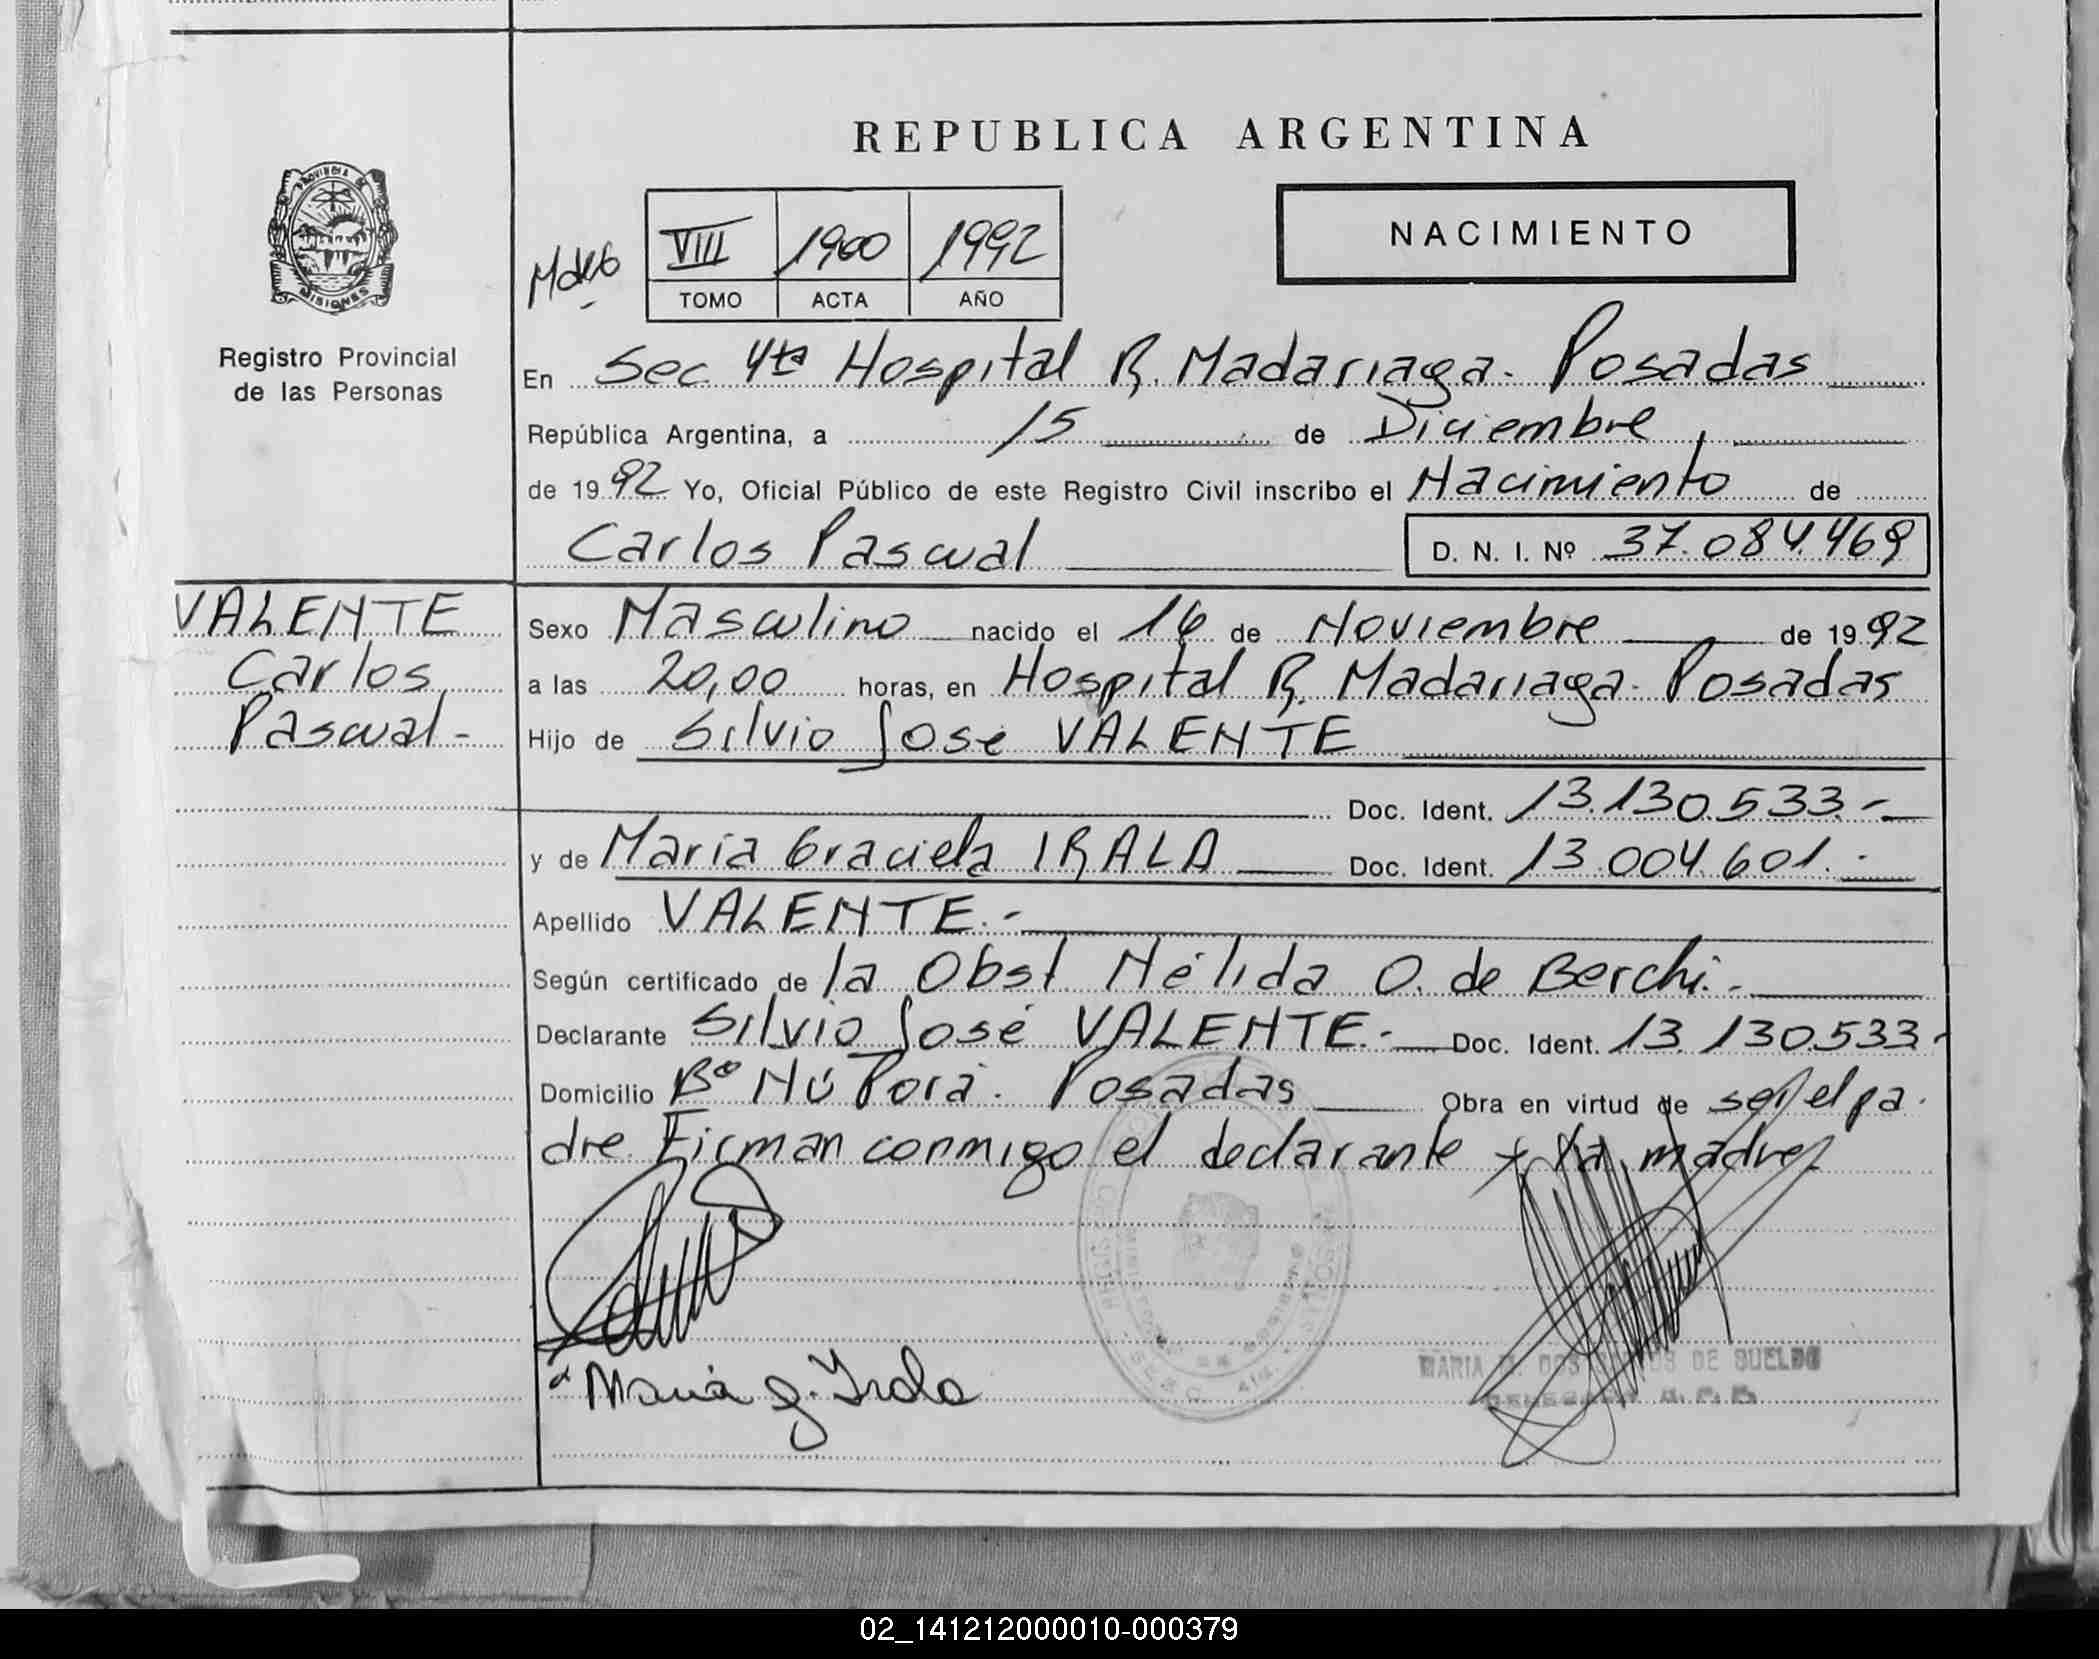 REPUBLICA ARGENTINA
PROVINCIA DE MISIONES
Registro Provincial
de las Personas
VIII 1900 1992
TOMO ACTA AÑO
NACIMIENTO
En Sec. 4ta Hospital R. Madariaga. Posadas
República Argentina, a 15 de Diciembre
de 1992 Yo, Oficial Público de este Registro Civil inscribo el Nacimiento de
Carlos Pascual D. N. I. Nº 37.084.469
VALENTE
Carlos
Pascual-
Sexo Masculino nacido el 16 de Noviembre de 1992
a las 20,00 horas, en Hospital R. Madariaga. Posadas
Hijo de Silvio José VALENTE
Doc. Ident. 13.130.533.-
y de María Graciela IRALA Doc. Ident. 13.004.601.-
Apellido VALENTE.-
Según certificado de la Obst. Nélida O. de Berchi.-
Declarante Silvio José VALENTE.- Doc. Ident. 13.130.533-
Domicilio Bº Ñú Porá. Posadas Obra en virtud de ser el pa-
dre. Firman conmigo el declarante y la madre
Maria G. Irala
MARIA DOS DE SUELDO
02_141212000010-000379